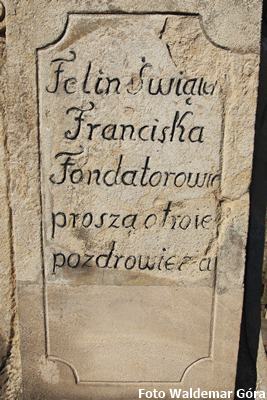 Felin Świąte
Franciska
Fondatorowie
proszą o troie
pozdrowieza
Foto Waldemar Góra